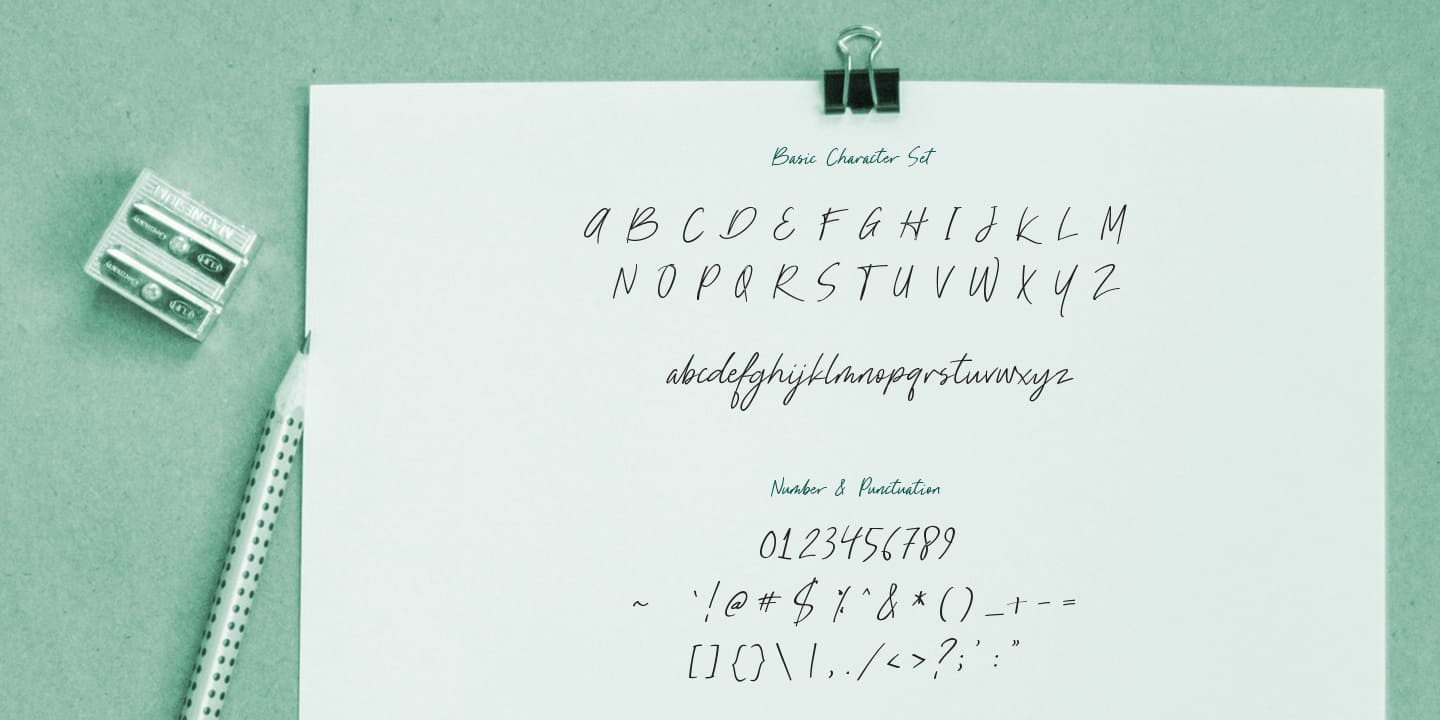 Basic Character Set
A B C D E F G H I J K L M
N O P Q R S T U V W X Y Z
abcdefghijklmnopqrstuvwxyz
Number & Punctuation
0123456789
~ `!@#$%^&*()_+-=
[]{}\|,./<>?;':”
MAGNESIUM
Germany
Germany